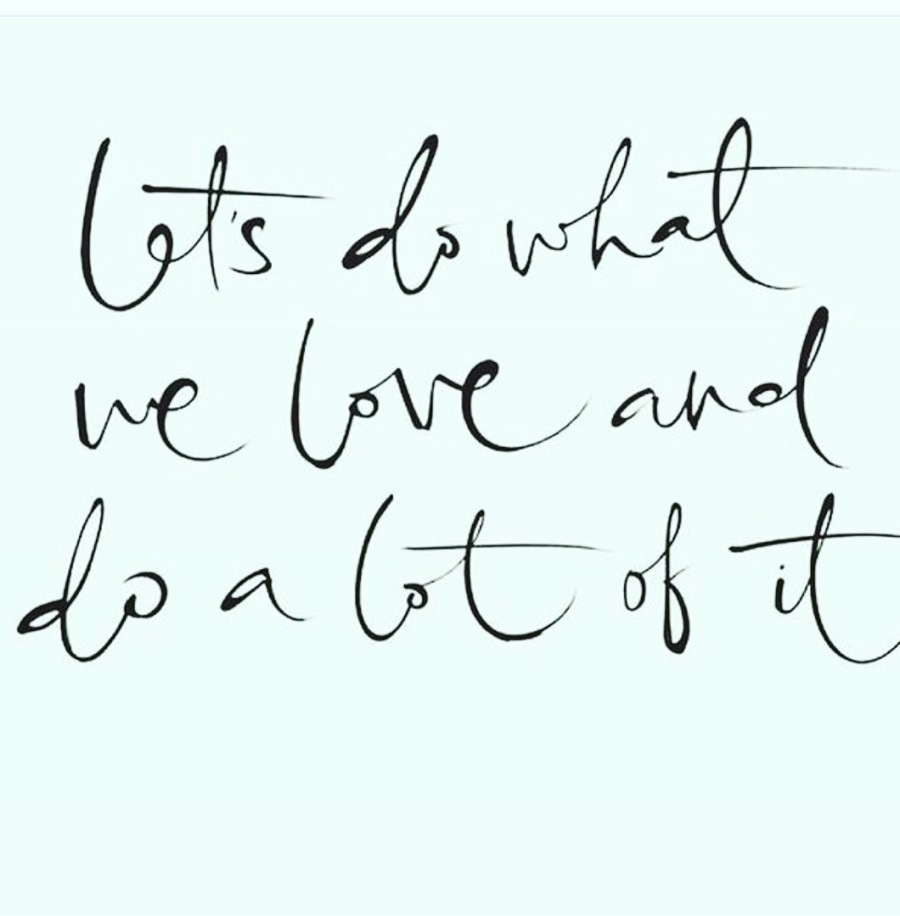 Let's do what
we love and
do a lot of it